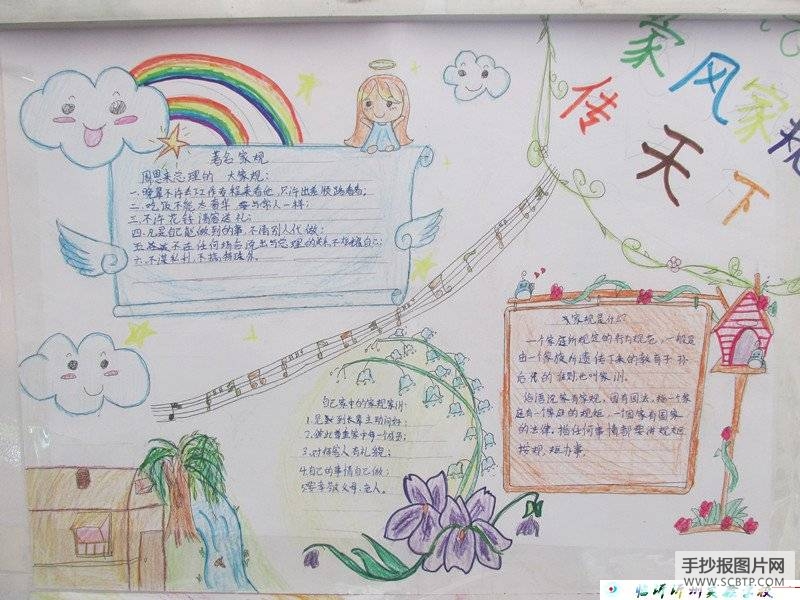 家风家规
传天下
著名家规
周恩来总理的 大家规:
一.晚辈不许去工作专程来看他,只许出差顺路看看;
二.吃饭不能 与常人一样;
三.不许花钱请客送礼;
四.凡是自己能做到的事,不需别人代做;
不在任何场合说出与总理的关系,不炫耀自己;
六.不谋私利,不搞特殊
家规是什么?
一个家庭所规定的行为规范,一般是
由一个家族所遗传下来的教育子孙
后代的准则,也叫家训。
俗语说家有家规,国有国法,指一个家
庭有一个家庭的规矩,一个国家有国家
的法律。指任何事情都要讲规矩
按规矩办事。
自己家中的家规家训:
1.见到长辈主动问好;
2.彼此尊重家中每一个成员;
3.对待客人有礼貌;
4.自己的事情自己做;
5.要孝敬父母、老人。
手抄报图片网
WWW.SCBTP.COM
临沂沂州实验学校